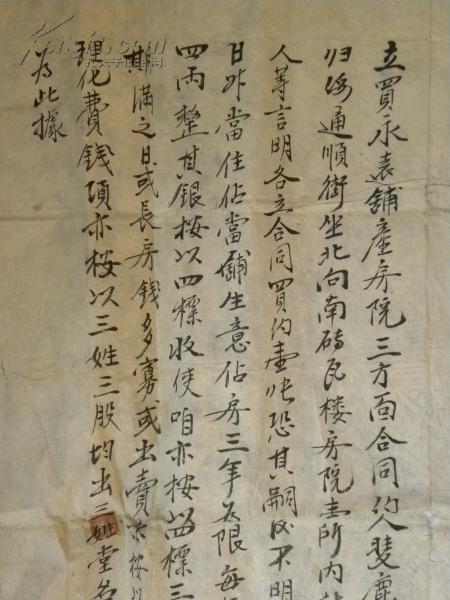 立買永遠舖産房院三方面合同約人斐
归绥通順街坐北向南磚瓦楼房院壹所内
人等言明各立合同買约壹张恐其嗣後不明
日昨當住佔當舖生意佔房三年為限每
四两整其銀按以四標收使咱亦按四標三
期满之日或長房錢多寡或出賣亦按以
理化費錢項亦按以三姓三股均出三姓堂名
為此據